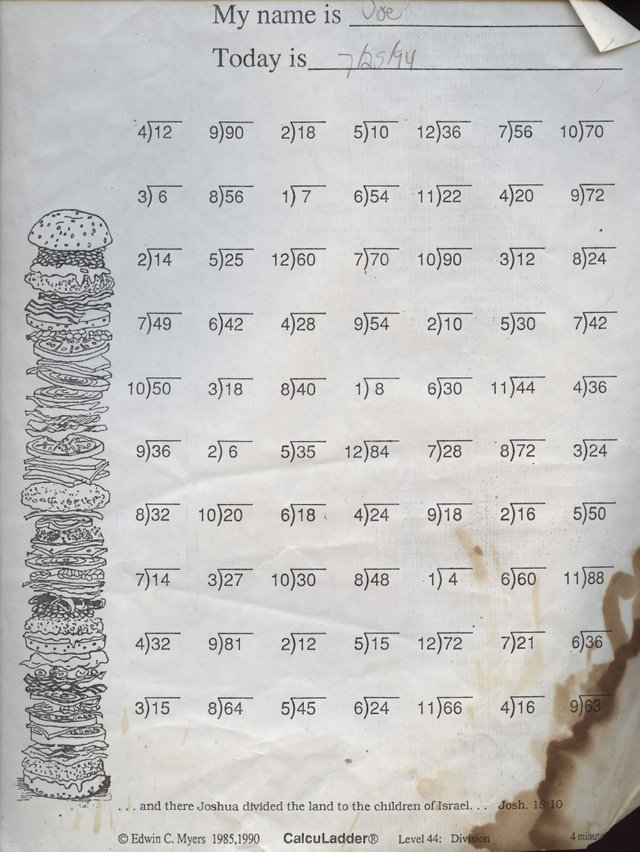 My name is Joe
Today is 7/25/94
4)12 9)90 2)18 5)10 12)36 7)56 10)70
3) 6 8)56 1) 7 6)54 11)22 4)20 9)72
2)14 5)25 12)60 7)70 10)90 3)12 8)24
7)49 6)42 4)28 9)54 2)10 5)30 7)42
10)50 3)18 8)40 1) 8 6)30 11)44 4)36
9)36 2) 6 5)35 12)84 7)28 8)72 3)24
8)32 10)20 6)18 4)24 9)18 2)16 5)50
7)14 3)27 10)30 8)48 1) 4 6)60 11)88
4)32 9)81 2)12 5)15 12)72 7)21 6)36
3)15 8)64 5)45 6)24 11)66 4)16 9)63
. . . and there Joshua divided the land to the children of Israel. . . Josh. 18:10
© Edwin C. Myers 1985,1990 CalcuLadder® Level 44: Division 4 minut